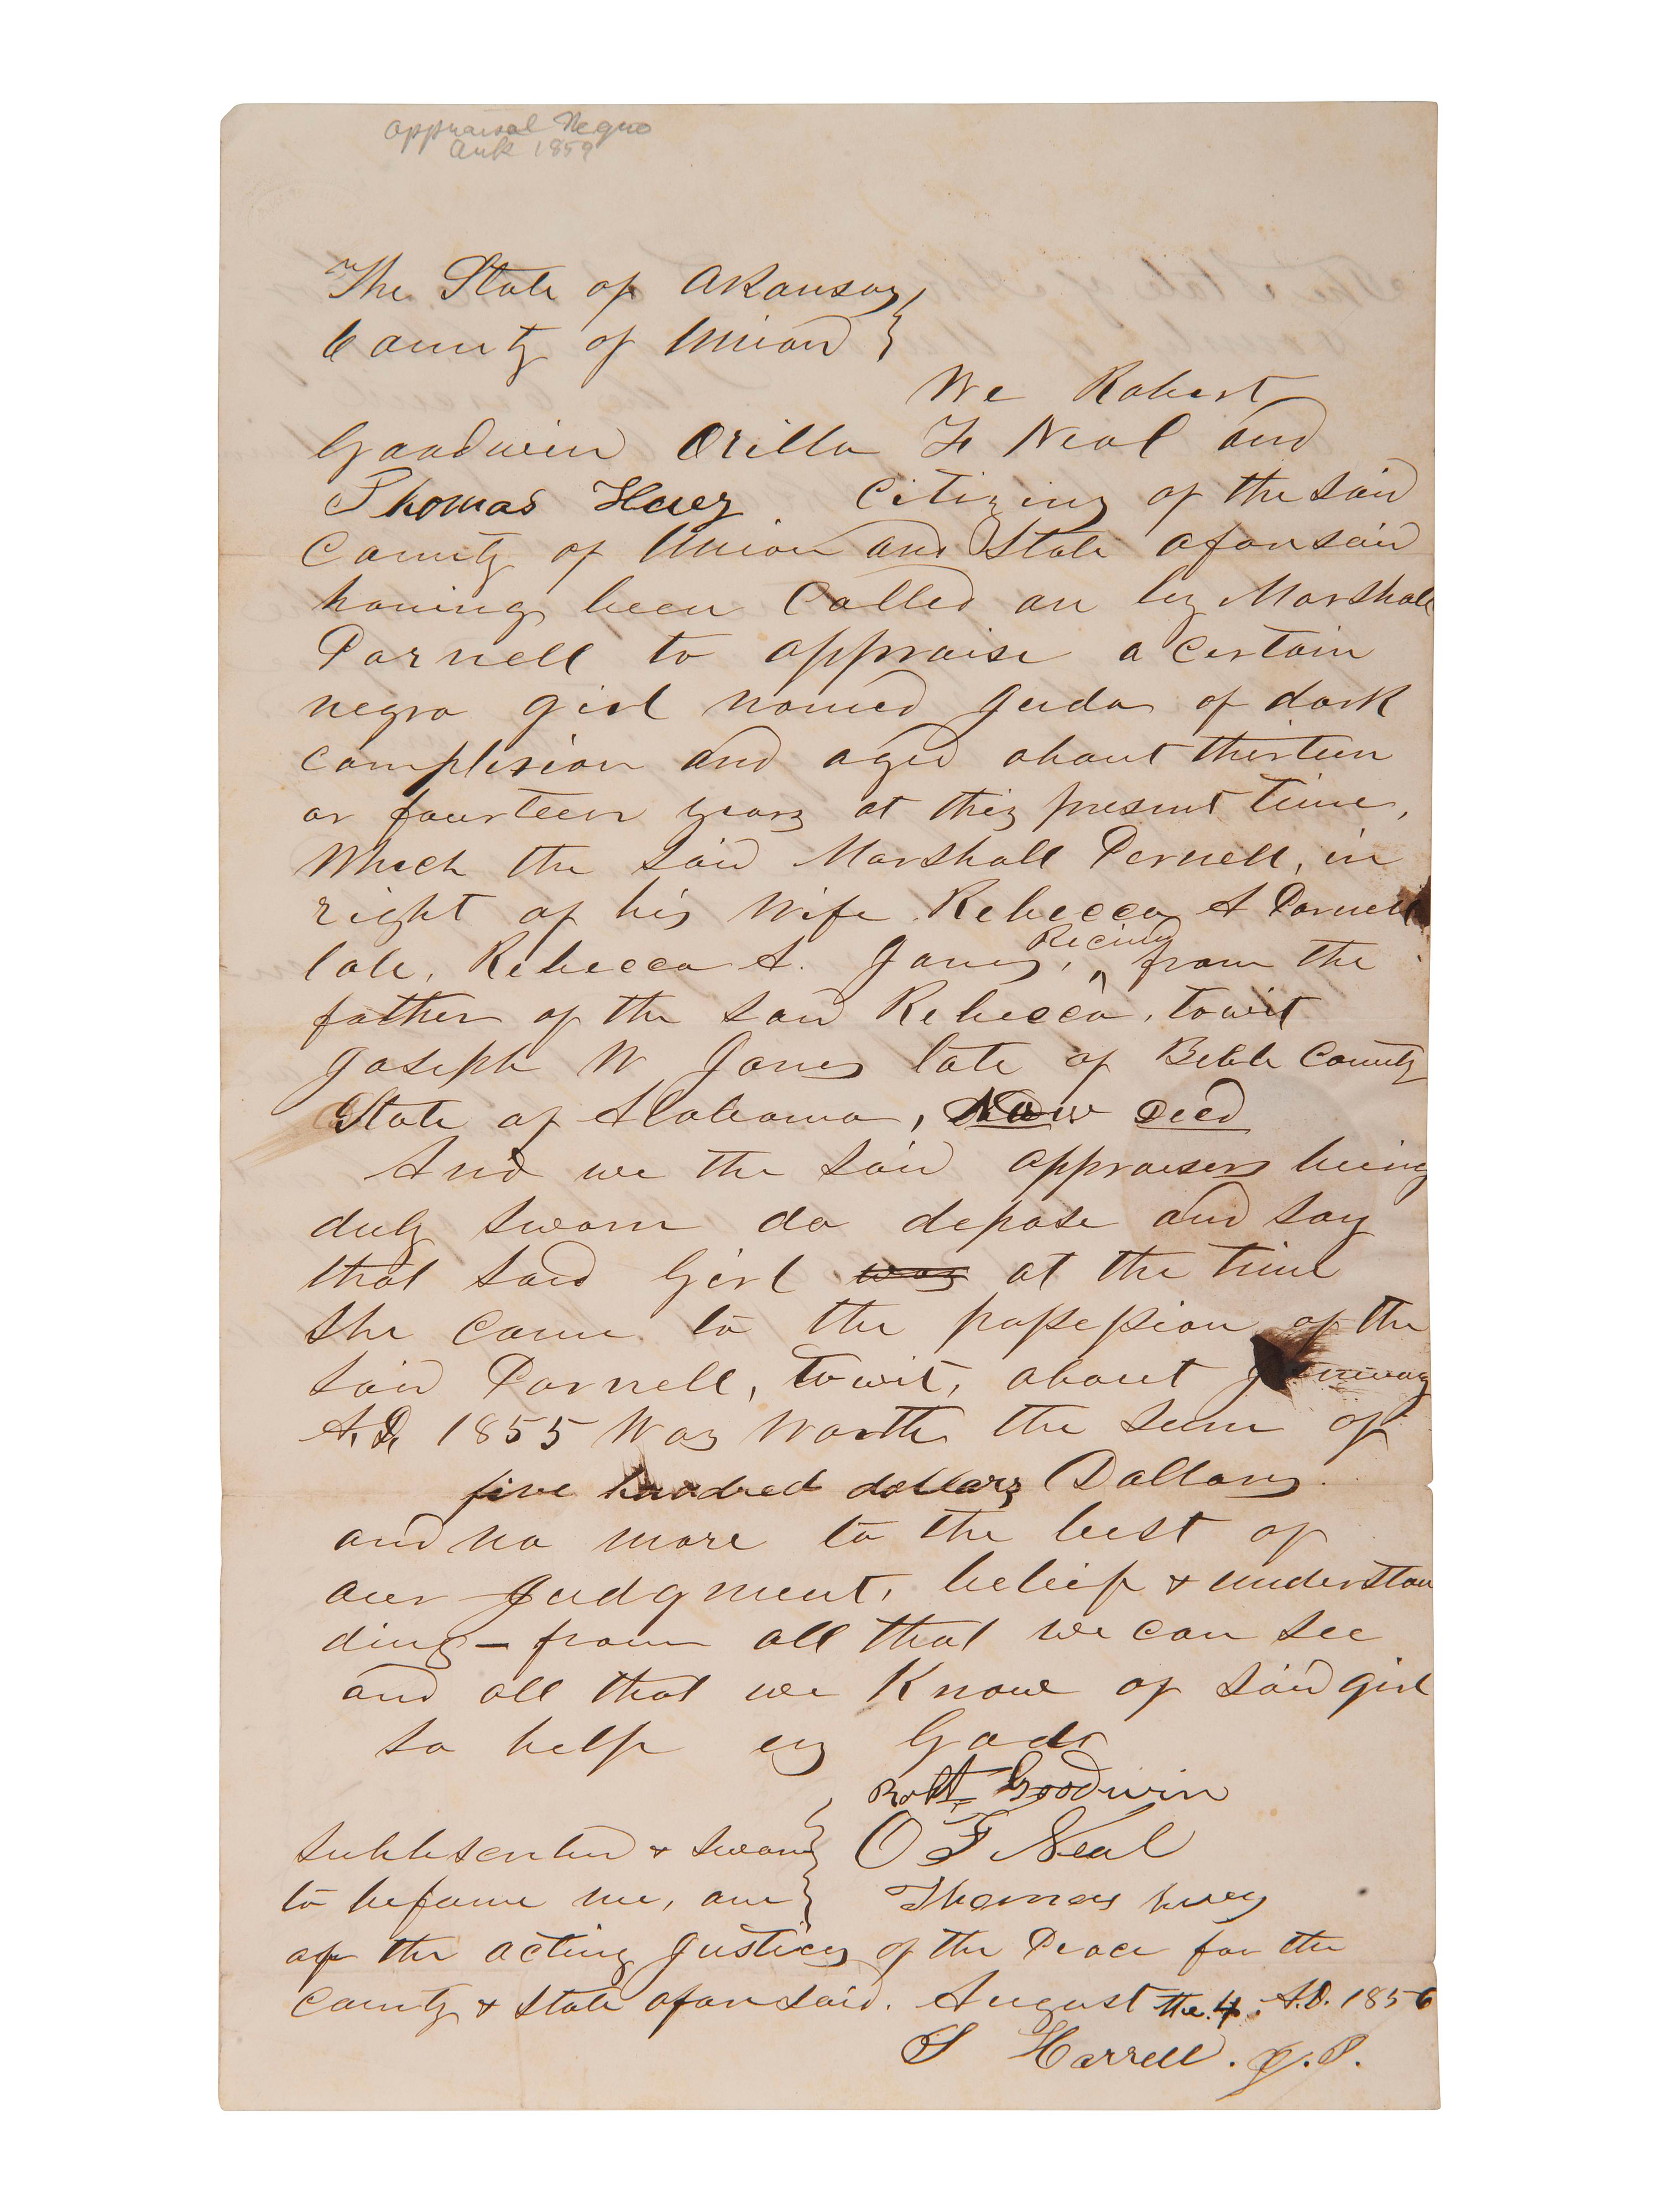 Appraisal Negro
Ark 1859
The State of Arkansas
County of Union
We Robert
Goodwin Orilla F Neal and
Thomas Huey Citizins of the said
County of Union and State aforesaid
having been Called on by Marshall
Parnell to appraise a Certain
negro girl named Juda of dark
complexion and aged about thirteen
or fourteen years at this present time,
Which the said Marshall Pernell, in
right of his Wife Rebecca A Parnell
late, Rebecca A. Jones, Recived from the
father of the said Rebecca, towit
Joseph W Jones late of Bibb County
State of Alabama, Now Deed
And we the said appraisers being
duly sworn do depose and say
that said Girl was at the time
she came to the possession of the
said Parnell, towit, about January
A.D. 1855 Was Worth the sum of
five hundred dollars Dollars.
and no more to the best of
our Judgment, beleif & understan
ding – from all that we can see
and all that we Know of said girl
so help us God
Robt Goodwin
O F Neal
Thomas huey
Subbscribed & sworn
to before me, one
of the acting Justices of the Peace for the
County & State aforesaid. August the 4. A.D. 1856
S Harrell. J.P.